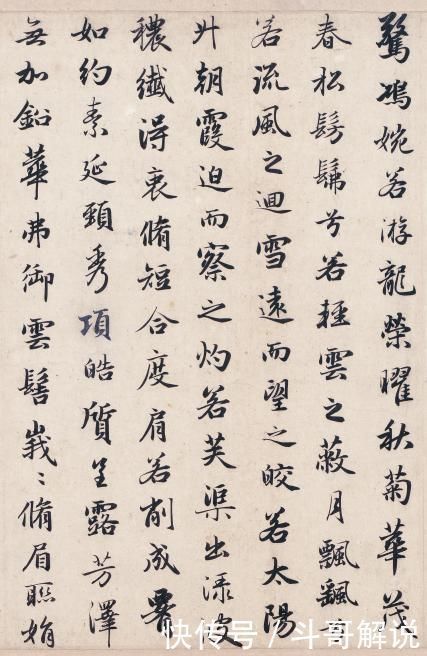 驚鴻婉若游龍榮曜秋菊華茂
春松髣髴兮若輕雲之蔽月飄飖兮
若流風之迴雪遠而望之皎若太陽
升朝霞迫而察之灼若芙渠出淥波
穠纖得衷脩短合度肩若削成
如約素延頸秀項皓質呈露芳澤
無加鉛華弗御雲髻峩〻脩眉聯娟
快传号 / 斗哥解说